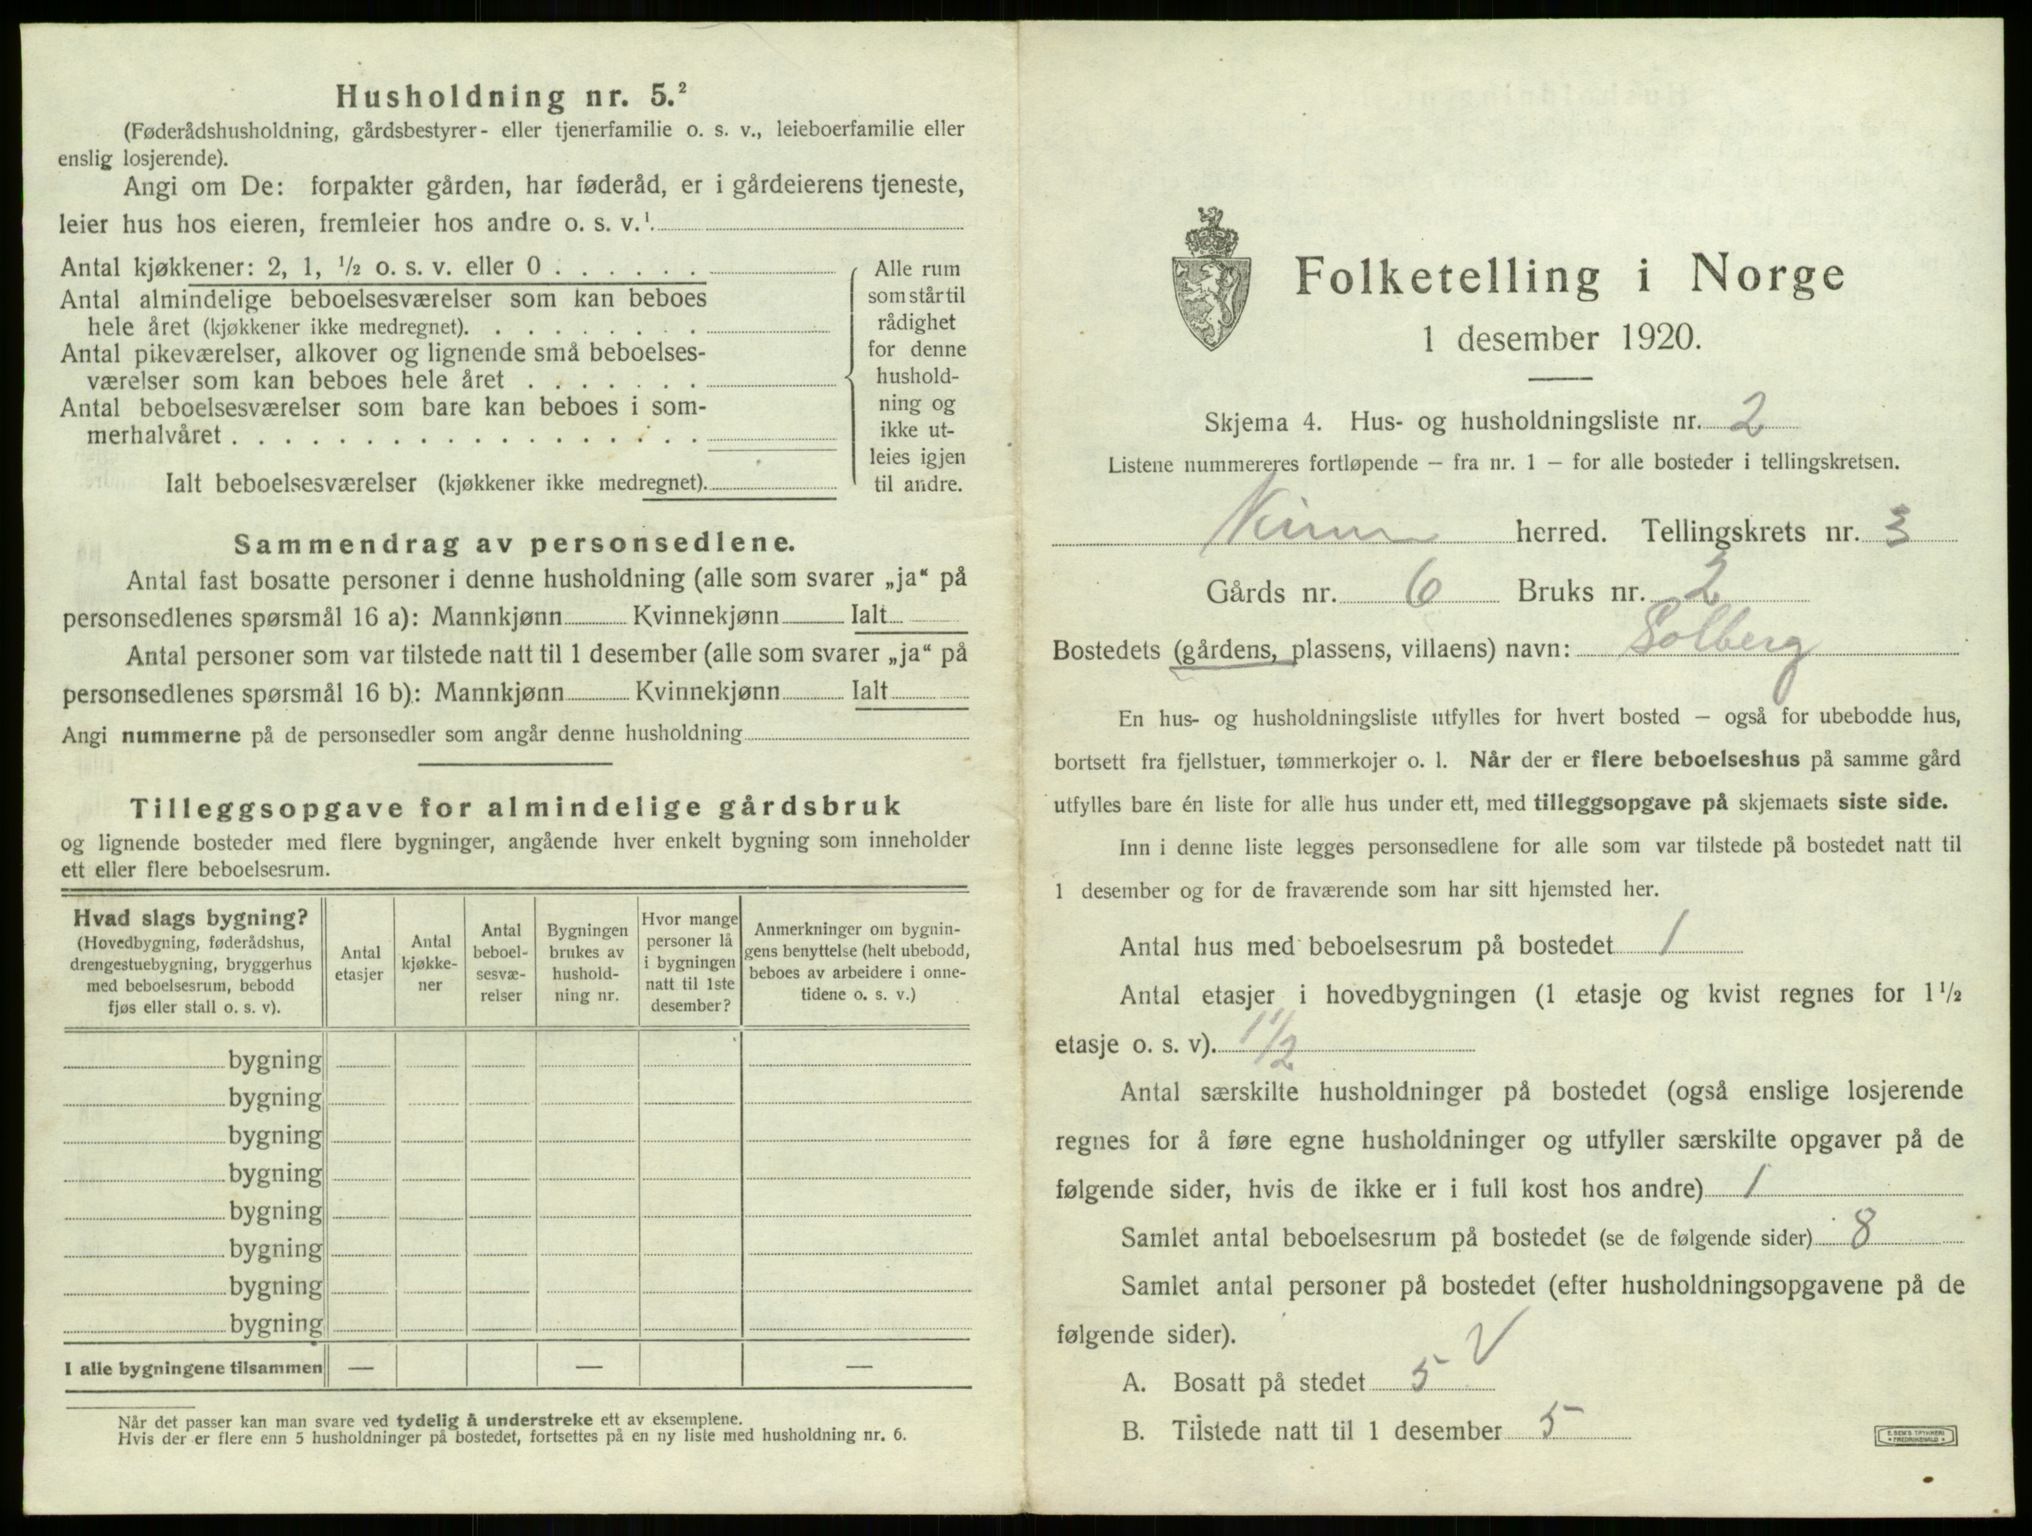 Husholdning nr. 5.²
(Føderådshusholdning, gårdsbestyrer- eller tjenerfamilie o. s. v., leieboerfamilie eller
enslig losjerende).
Angi om De: forpakter gården, har føderåd, er i gårdeierens tjeneste,
leier hus hos eieren, fremleier hos andre o. s. v.¹
Antal kjøkkener: 2, 1, ½ o. s. v. eller 0 . . . . . .
Antal almindelige beboelsesværelser som kan beboes
hele året (kjøkkener ikke medregnet). . . . . . . . .
Antal pikeværelser, alkover og lignende små beboelses-
værelser som kan beboes hele året . . . . . . .
Antal beboelsesværelser som bare kan beboes i som-
merhalvåret . . . . . . . . . . . . . . . . . .
Ialt beboelsesværelser (kjøkkener ikke medregnet).
Alle rum
som står til
rådighet
for denne
hushold-
ning og
ikke ut-
leies igjen
til andre.
Sammendrag av personsedlene.
Antal fast bosatte personer i denne husholdning (alle som svarer „ja“ på
personsedlenes spørsmål 16 a): Mannkjønn Kvinnekjønn Ialt
Antal personer som var tilstede natt til 1 desember (alle som svarer „ja“ på
personsedlenes spørsmål 16 b): Mannkjønn Kvinnekjønn Ialt
Angi nummerne på de personsedler som angår denne husholdning
Tilleggsopgave for almindelige gårdsbruk
og lignende bosteder med flere bygninger, angående hver enkelt bygning som inneholder
ett eller flere beboelsesrum.
Hvad slags bygning?
(Hovedbygning, føderådshus,
drengestuebygning, bryggerhus
med beboelsesrum, bebodd
fjøs eller stall o. s. v).
Antal
etasjer
Antal
kjøkke-
ner
Antal
beboel-
sesvæ-
relser
Bygningen
brukes av
hushold-
ning nr.
Hvor mange
personer lå
i bygningen
natt til 1ste
desember?
Anmerkninger om bygnin-
gens benyttelse (helt ubebodd,
beboes av arbeidere i onne-
tidene o. s. v.)
bygning
bygning
bygning
bygning
bygning
bygning
bygning
bygning
I alle bygningene tilsammen — — —
Når det passer kan man svare ved tydelig å understreke ett av eksemplene.
Hvis der er flere enn 5 husholdninger på bostedet, fortsettes på en ny liste med husholdning nr. 6.
Folketelling i Norge
1 desember 1920.
Skjema 4. Hus- og husholdningsliste nr. 2
Listene nummereres fortløpende – fra nr. 1 – for alle bosteder i tellingskretsen.
Kinn herred. Tellingskrets nr. 3
Gårds nr. 6 Bruks nr. 2
Bostedets (gårdens, plassens, villaens) navn: Solberg
En hus- og husholdningsliste utfylles for hvert bosted – også for ubebodde hus,
bortsett fra fjellstuer, tømmerkojer o. l. Når der er flere beboelseshus på samme gård
utfylles bare én liste for alle hus under ett, med tilleggsopgave på skjemaets siste side.
Inn i denne liste legges personsedlene for alle som var tilstede på bostedet natt til
1 desember og for de fraværende som har sitt hjemsted her.
Antal hus med beboelsesrum på bostedet 1
Antal etasjer i hovedbygningen (1 etasje og kvist regnes for 1½
etasje o. s. v). 1½
Antal særskilte husholdninger på bostedet (også enslige losjerende
regnes for å føre egne husholdninger og utfyller særskilte opgaver på de
følgende sider, hvis de ikke er i full kost hos andre) 1
Samlet antal beboelsesrum på bostedet (se de følgende sider) 8
Samlet antal personer på bostedet (efter husholdningsopgavene på de
følgende sider). V
A. Bosatt på stedet 5
B. Tilstede natt til 1 desember 5
E. SEM'S TRYKKERI
FREDRIKSHALD